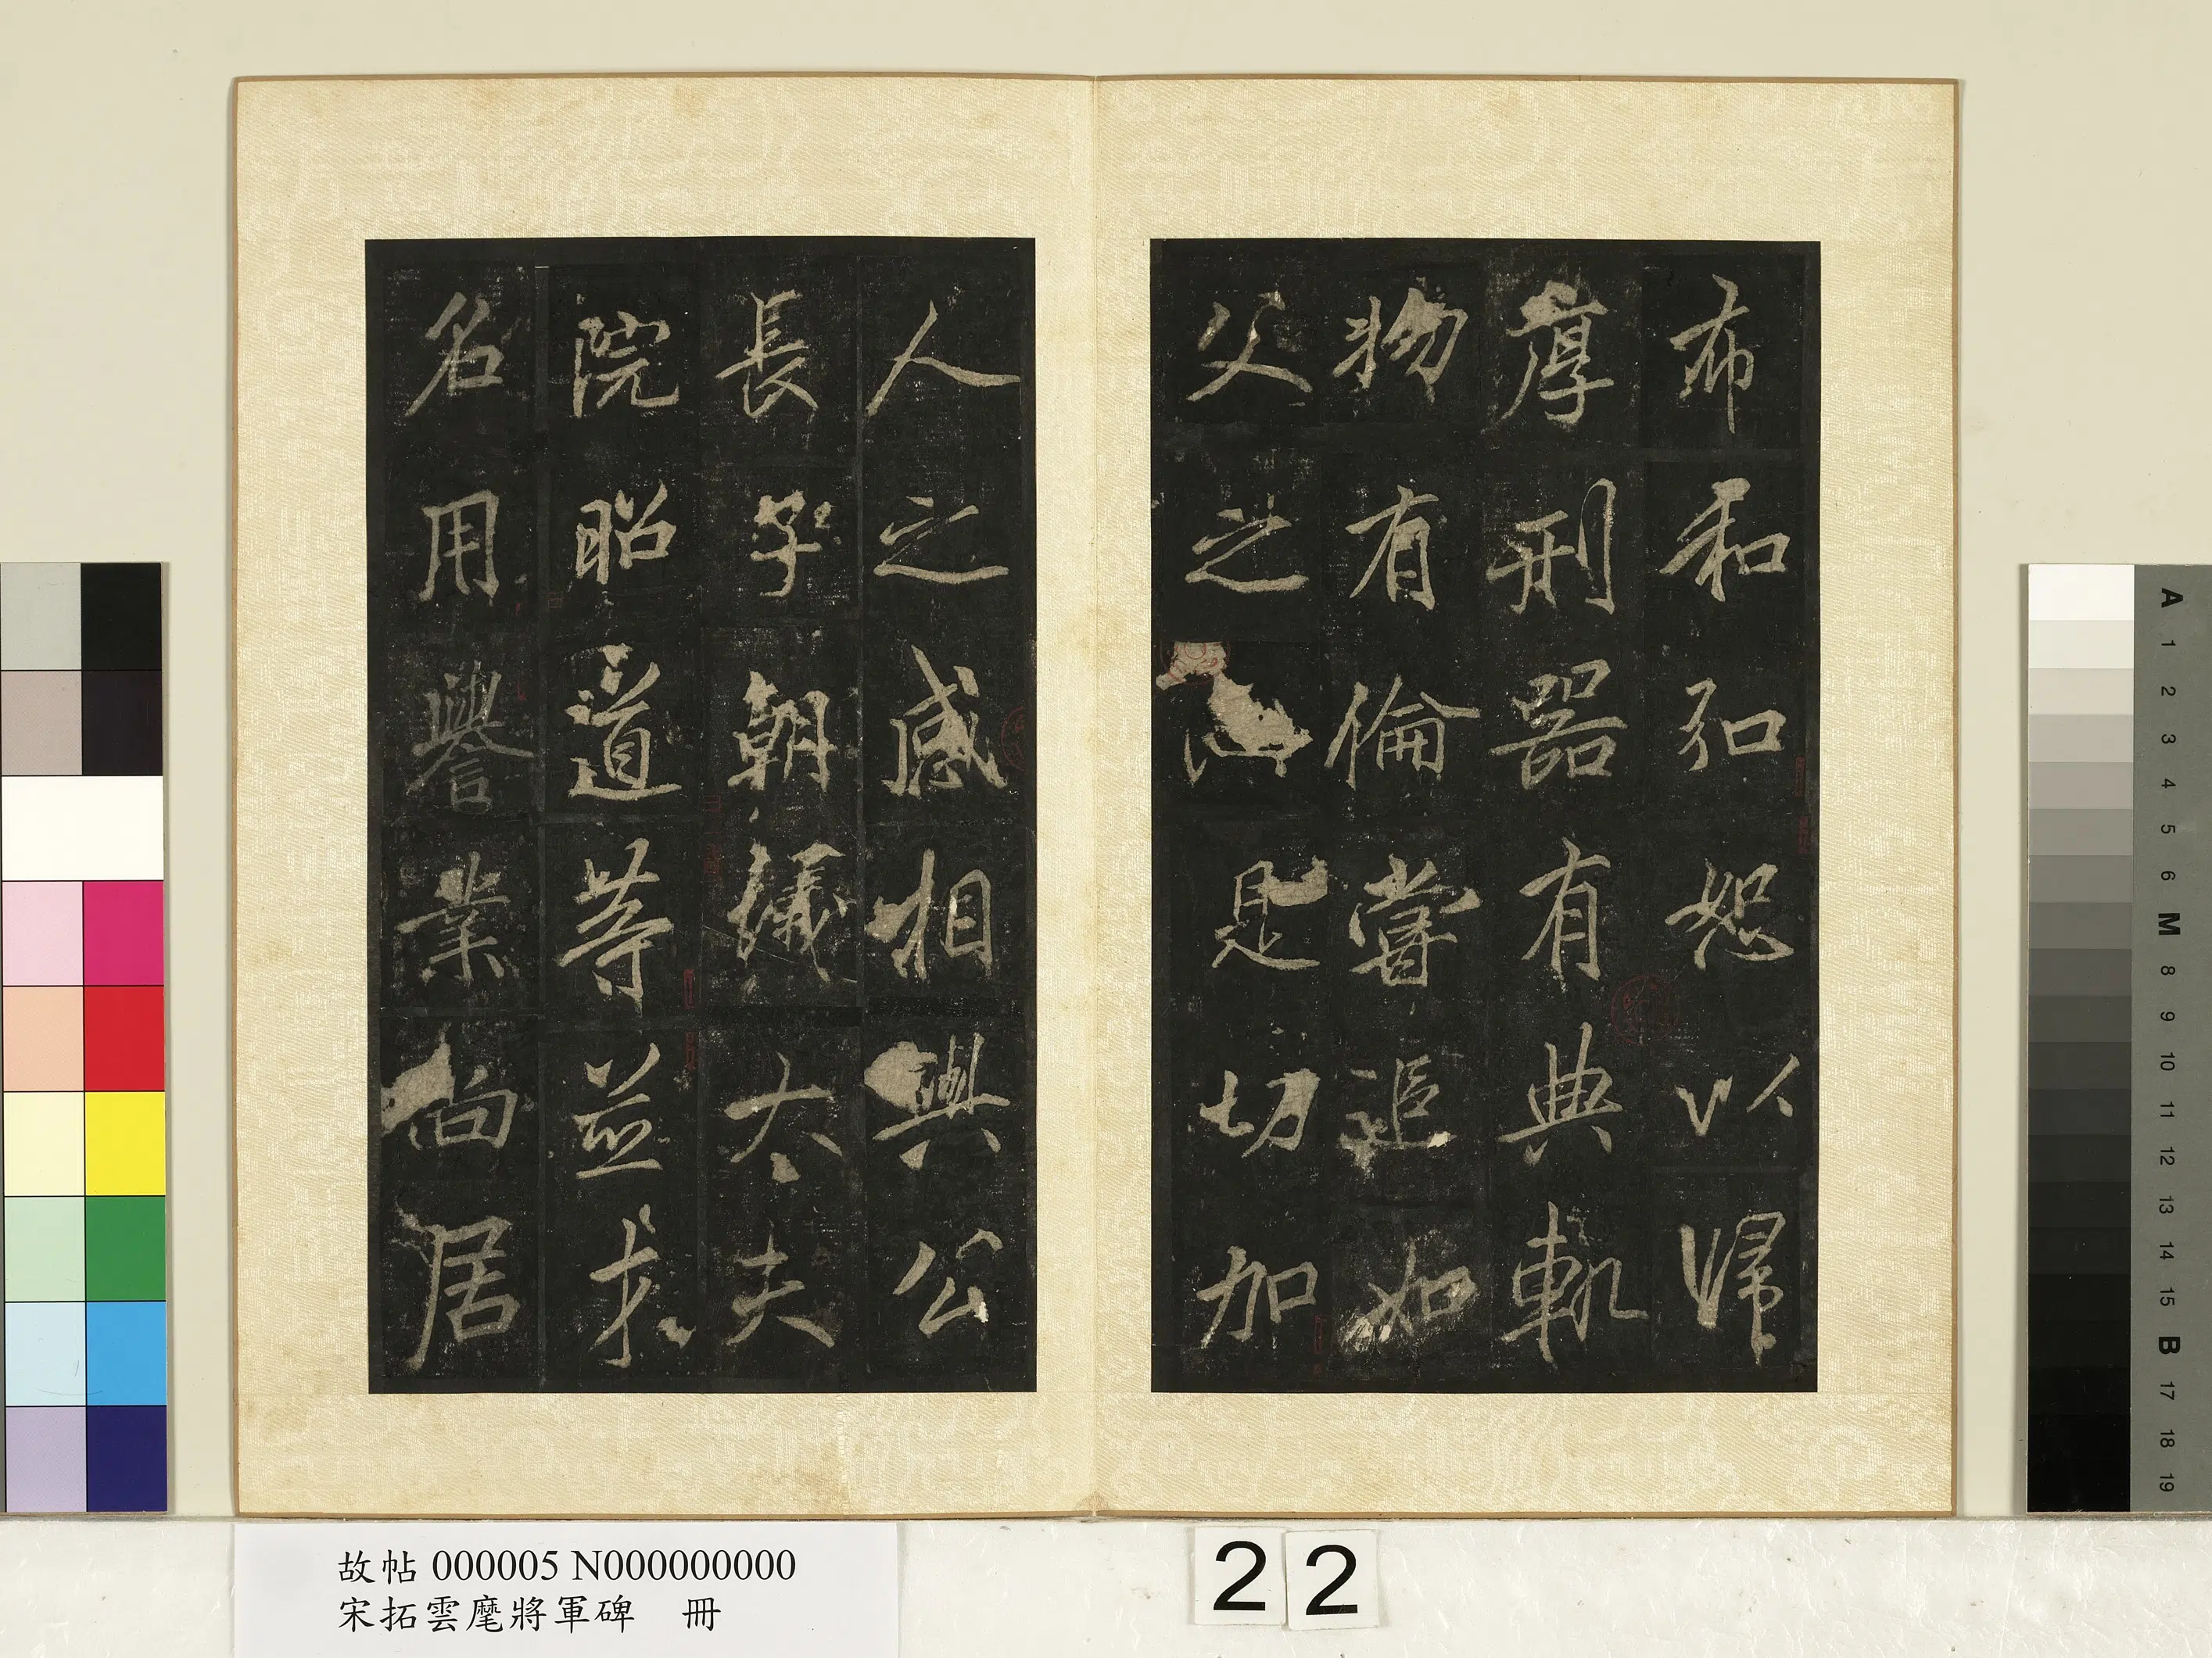 布和弘恕以歸
厚刑器有典軌
物有倫嘗追如
父之是切加
人之感相與公
長子朝議太夫
院昭道等並才
名用譽業尚居
故帖 000005 N000000000
宋拓雲麾將軍碑 冊
22
A 1 2 3 4 5 6 M 8 9 10 11 12 13 14 15 B 17 18 19